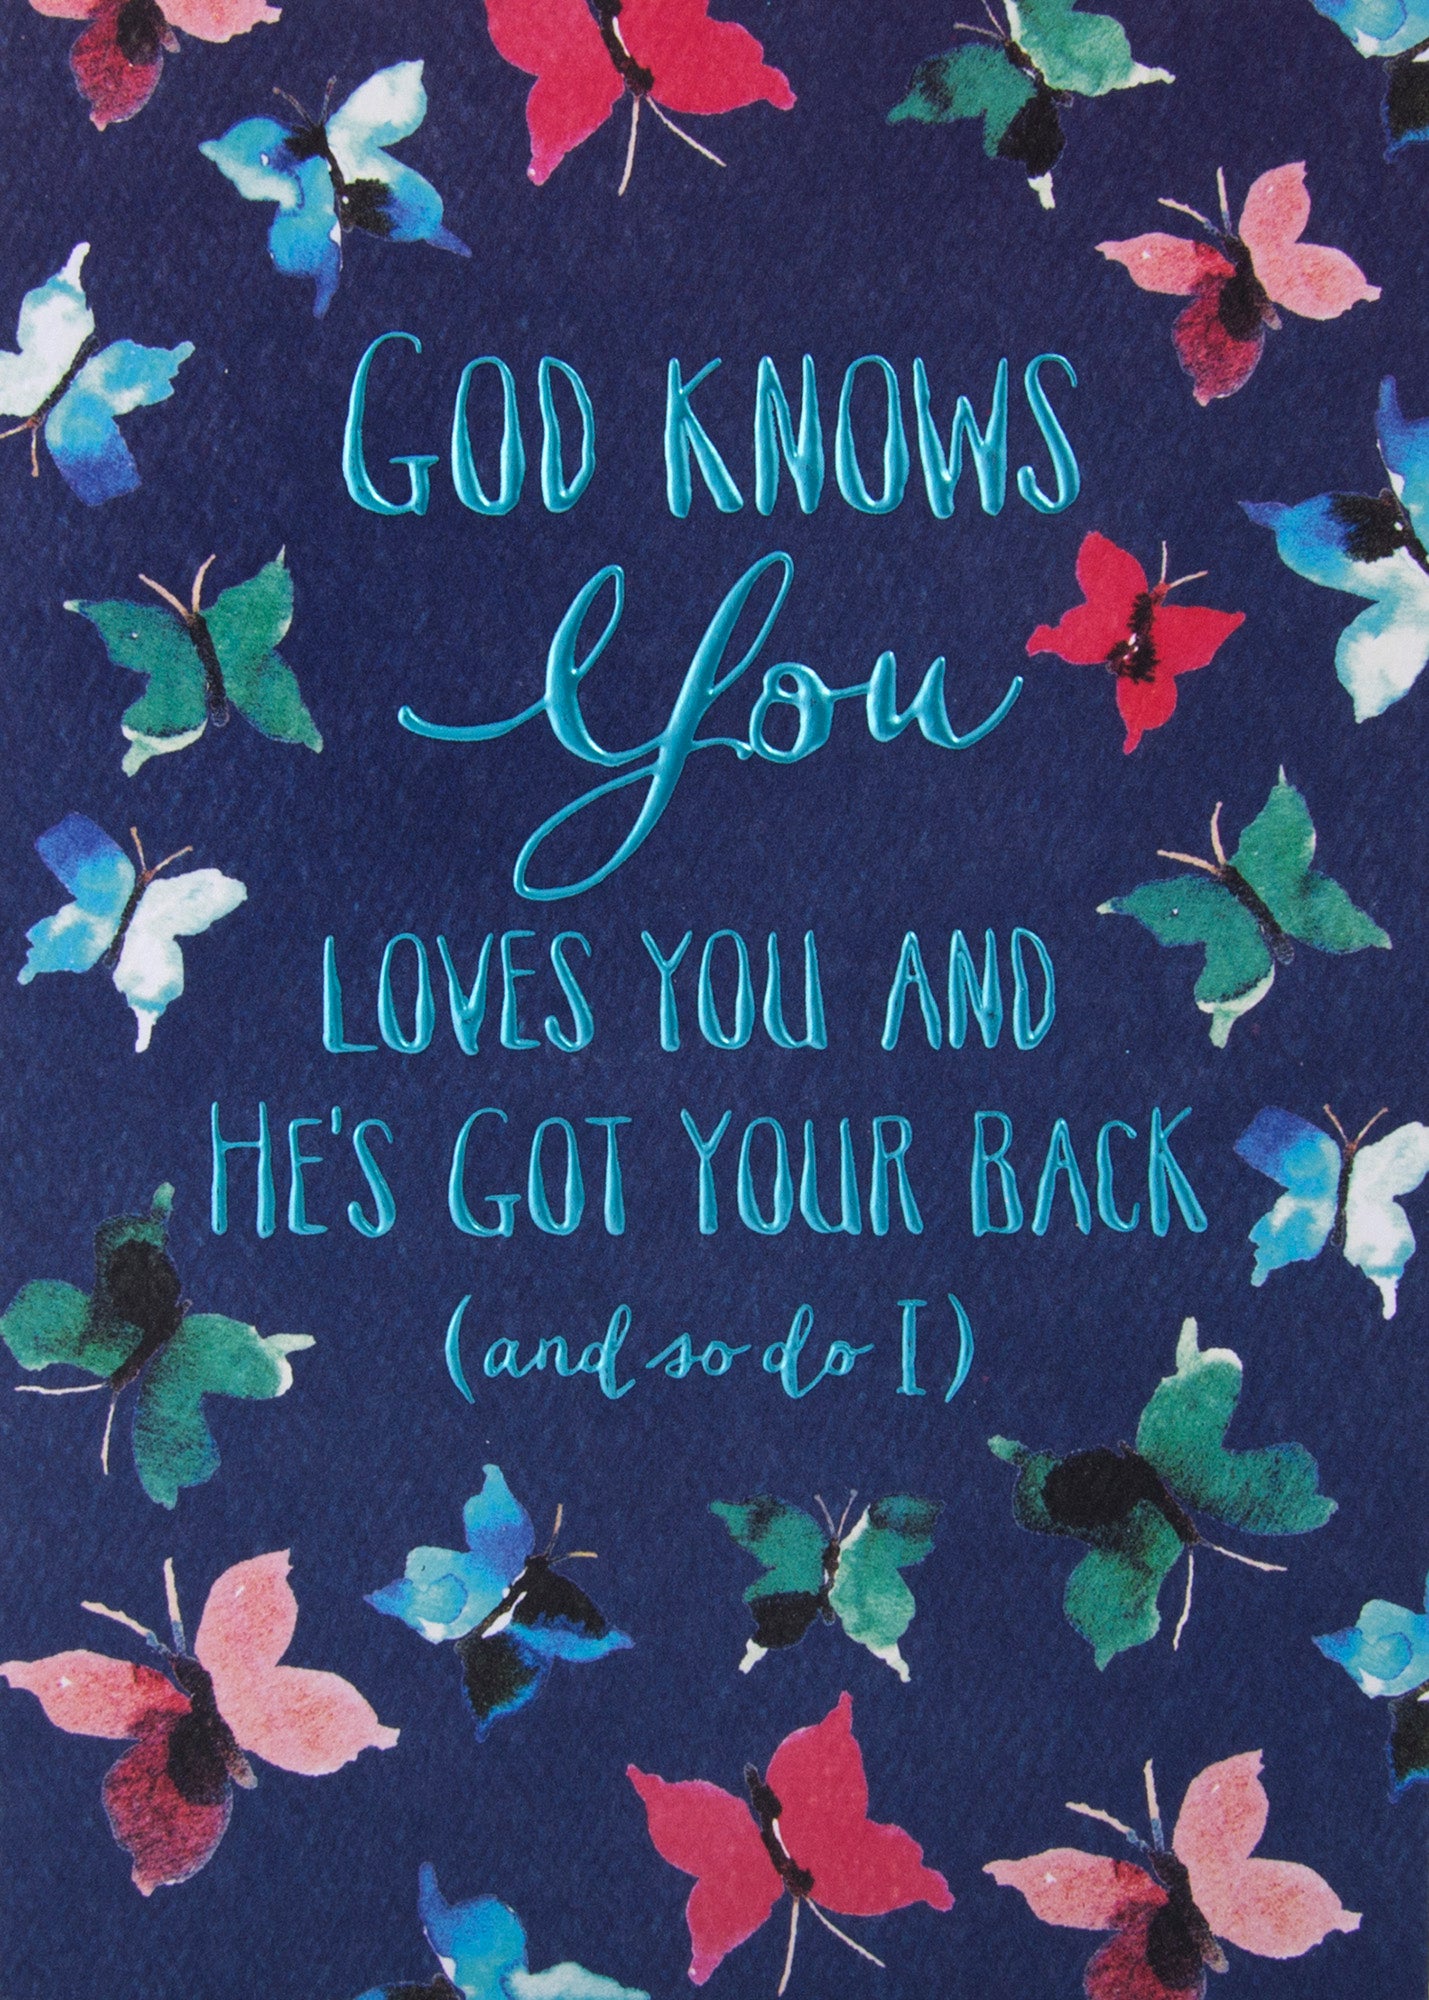 GOD KNOWS
You
LOVES YOU AND
HE'S GOT YOUR BACK
(and so do I)